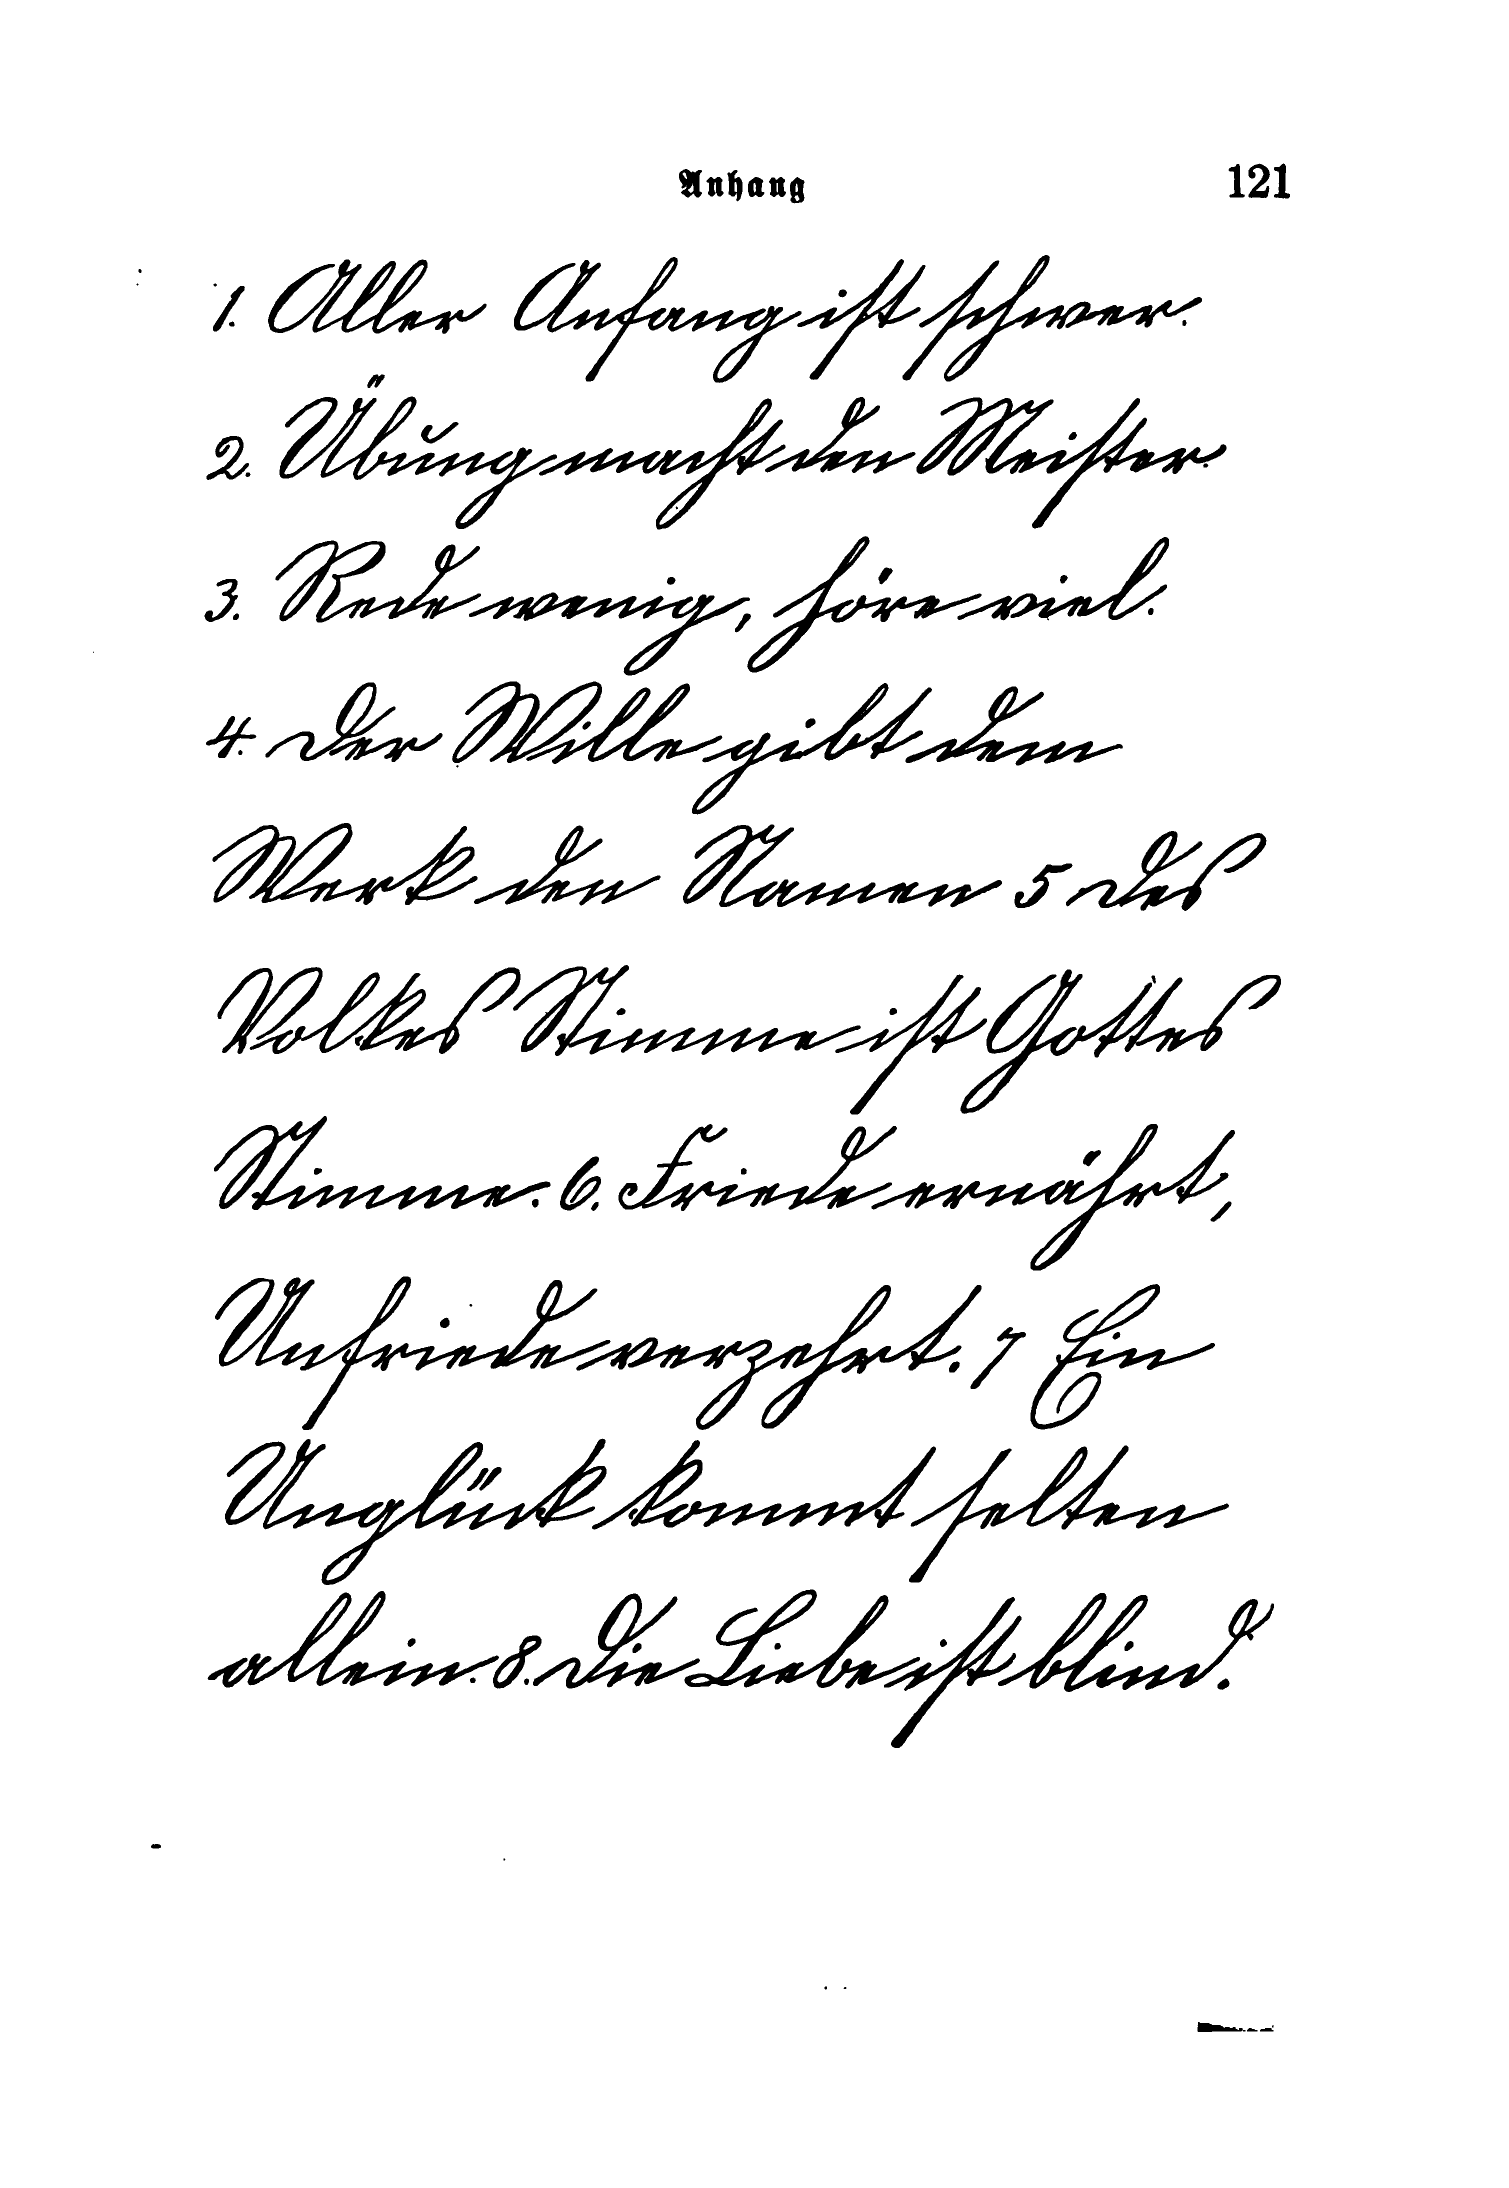 Anhang 121
1. Aller Anfang ist schwer.
2. Übung macht den Meister.
3. Rede wenig, höre viel.
4. Der Wille gibt dem
Werk den Namen 5 Des
Volkes Stimme ist Gottes
Stimme. 6. Friede ernährt,
Unfriede verzehrt. 7 Ein
Unglück kommt selten
allein. 8. Die Liebe ist blind.